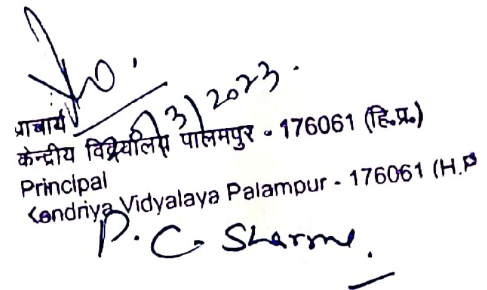 प्राचार्य
3/2023.
केन्द्रीय विद्यालय पालमपुर - 176061 (हि.प्र.)
Principal
Kendriya Vidyalaya Palampur - 176061 (H.P
P. C. Sharma.